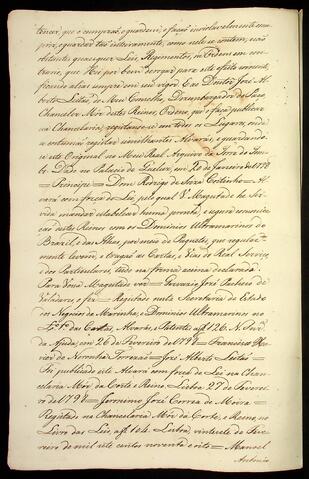 tencer, que o cumprão, e guardem, e fação inviolavelmente cum-
prir, e guardar tão inteiramente, como nelle se contem, não
obstante quaesquer Leis, Regimentos, ou Ordens em con-
trario, que Hei por bem derogar para este effeito sómente,
ficando alias sempre em seu vigor. E ao Doutor José Al-
berto Leitão, do Meu Conselho, Dezembargador do Paço,
Chanceler Mór destes Reinos, Ordeno, que o faça publicar
na Chancelaria, registando-se em todos os Lugares, onde
se costumão registar similhantes Alvarás, e guardando-
se este Original no Meu Real Arquivo da Torre do Tom-
bo. Dado no Palacio de Queluz, em 20 de Janeiro de 1798
= Principe = Dom Rodrigo de Souza Coitinho = Al-
vará com força de Lei, pelo qual V. Magestade he Ser-
vida mandar estabelecer huma prompta, e segura communica-
ção destes Reinos com os Dominios Ultramarinos do
Brazil, e das Ilhas, por meio de Paquetes, que regular-
mente levem, e tragão as Cartas, e Vias do Real Serviço,
e dos Particulares, tudo na forma acima declarada.
Para Vossa Magestade ver = Pacheco de
Valadares, o fez = Registado nesta Secretaria de Estado
dos Negocios da Marinha, e Dominios Ultramarinos no
das Cartas, Alvarás, e Patentes a f 126. N. Snra
da Ajuda, em 26 de Fevereiro de 1798 = Francisco Xa-
vier de Noronha Torrezão = José Alberto Leitão
Foi publicado este Alvará com força de Lei na Chan-
celaria Mór da Corte e Reino. Lisboa 27 de Feverei-
ro de 1798 = Jeronimo José Correa de Moira =
Registado na Chancelaria Mór da Corte, e Reino, no
Livro das Leis, a f 104. Lisboa, vinte sete de Feve-
reiro de mil sete centos noventa e oito = Manoel
Antonio